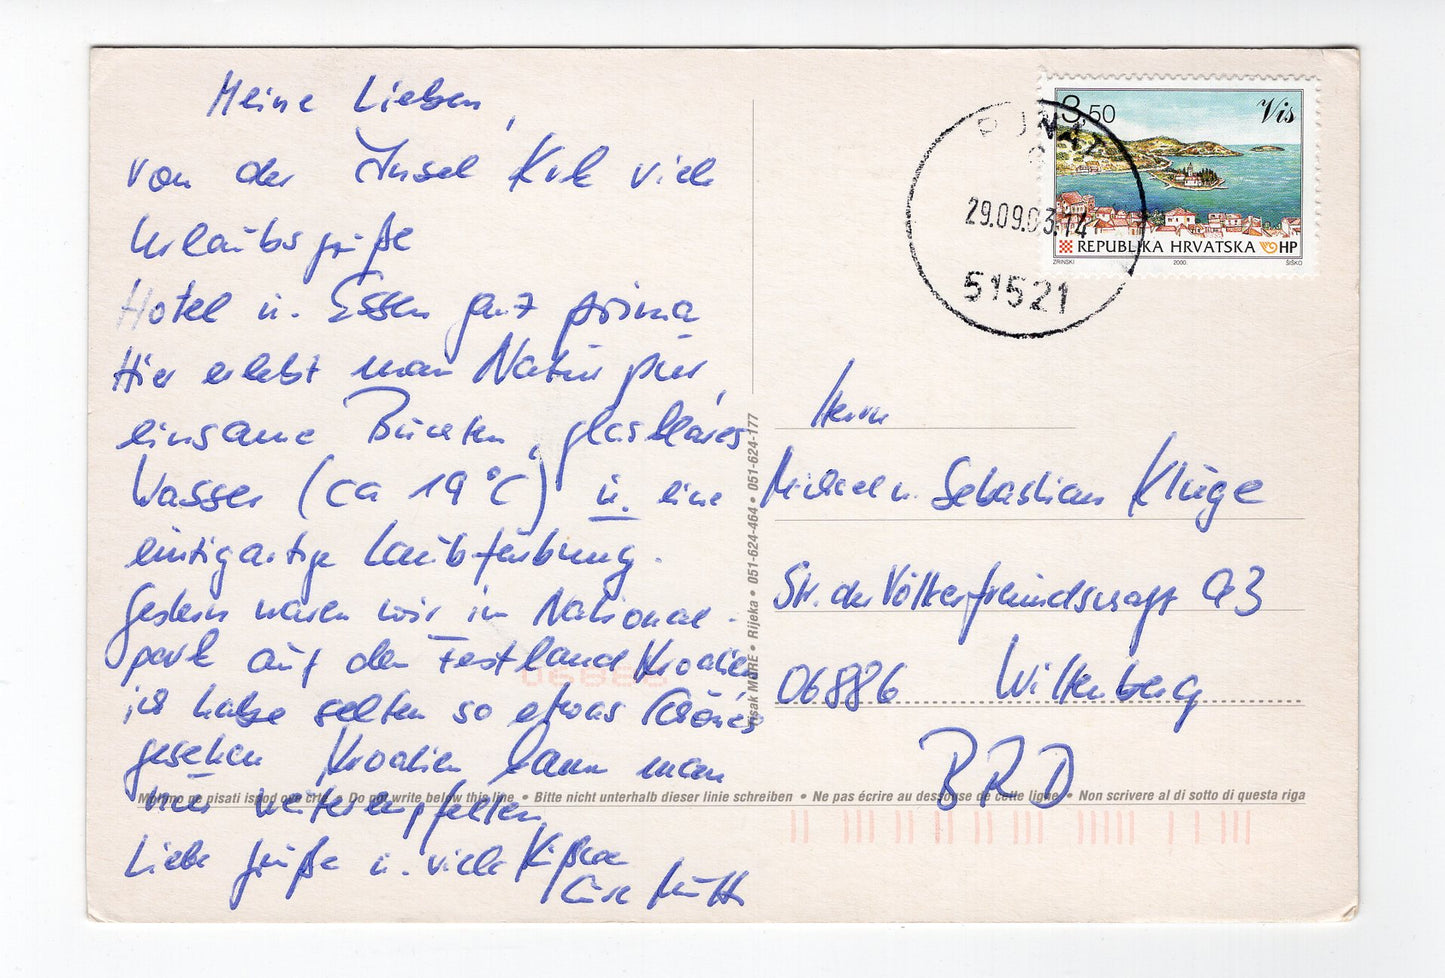 Meine Lieben,
von der Insel Krk viele
Urlaubsgrüße
Hotel u. Essen ganz prima
Hier erlebt man Natur pur,
einsame Buchten, glasklares
Wasser (ca 19°C) u. eine
einzigartige Laubfärbung.
Gestern waren wir im National-
park auf dem Festland Kroatien
ich habe selten so etwas Schönes
gesehen Kroatien kann man
nur weiterempfehlen
Liebe Grüße u. viele Küßchen
Eure Mutti
Tisak MORE • Rijeka • 051-624-464 • 051-624-177
3,50
Vis
REPUBLIKA HRVATSKA HP
ZRINSKI 2000. ŠIŠKO
PUNAT
29.09.03.14
51521
Herrn
Michael u. Sebastian Kluge
Str. der Völkerfreundschaft 93
06886 Wittenberg
BRD
06886
Molimo ne pisati ispod ove crte • Do not write below this line • Bitte nicht unterhalb dieser linie schreiben • Ne pas écrire au dessouse de cette ligne • Non scrivere al di sotto di questa riga